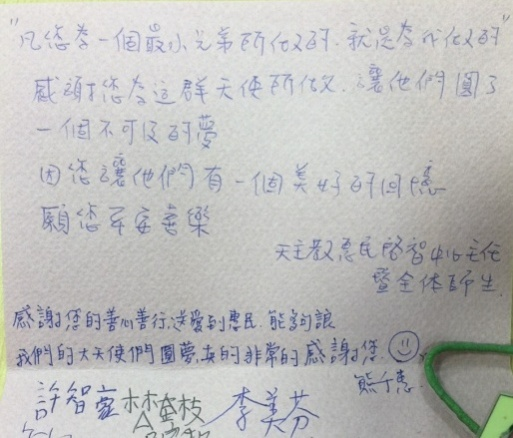 "凡您為一個最小兄弟所做的,就是為我做的"
感謝您為這群天使所做,讓他們圓了
一個不可及的夢
因您讓他們有一個美好的回憶
願您平安喜樂
天主教惠民啓智中心主任
暨全体師生
感謝您的善心善行,送愛到惠民,能夠讓
我們的大天使們圓夢,真的非常的感謝您.
熊于惠.
許智 林金枝 李美芬